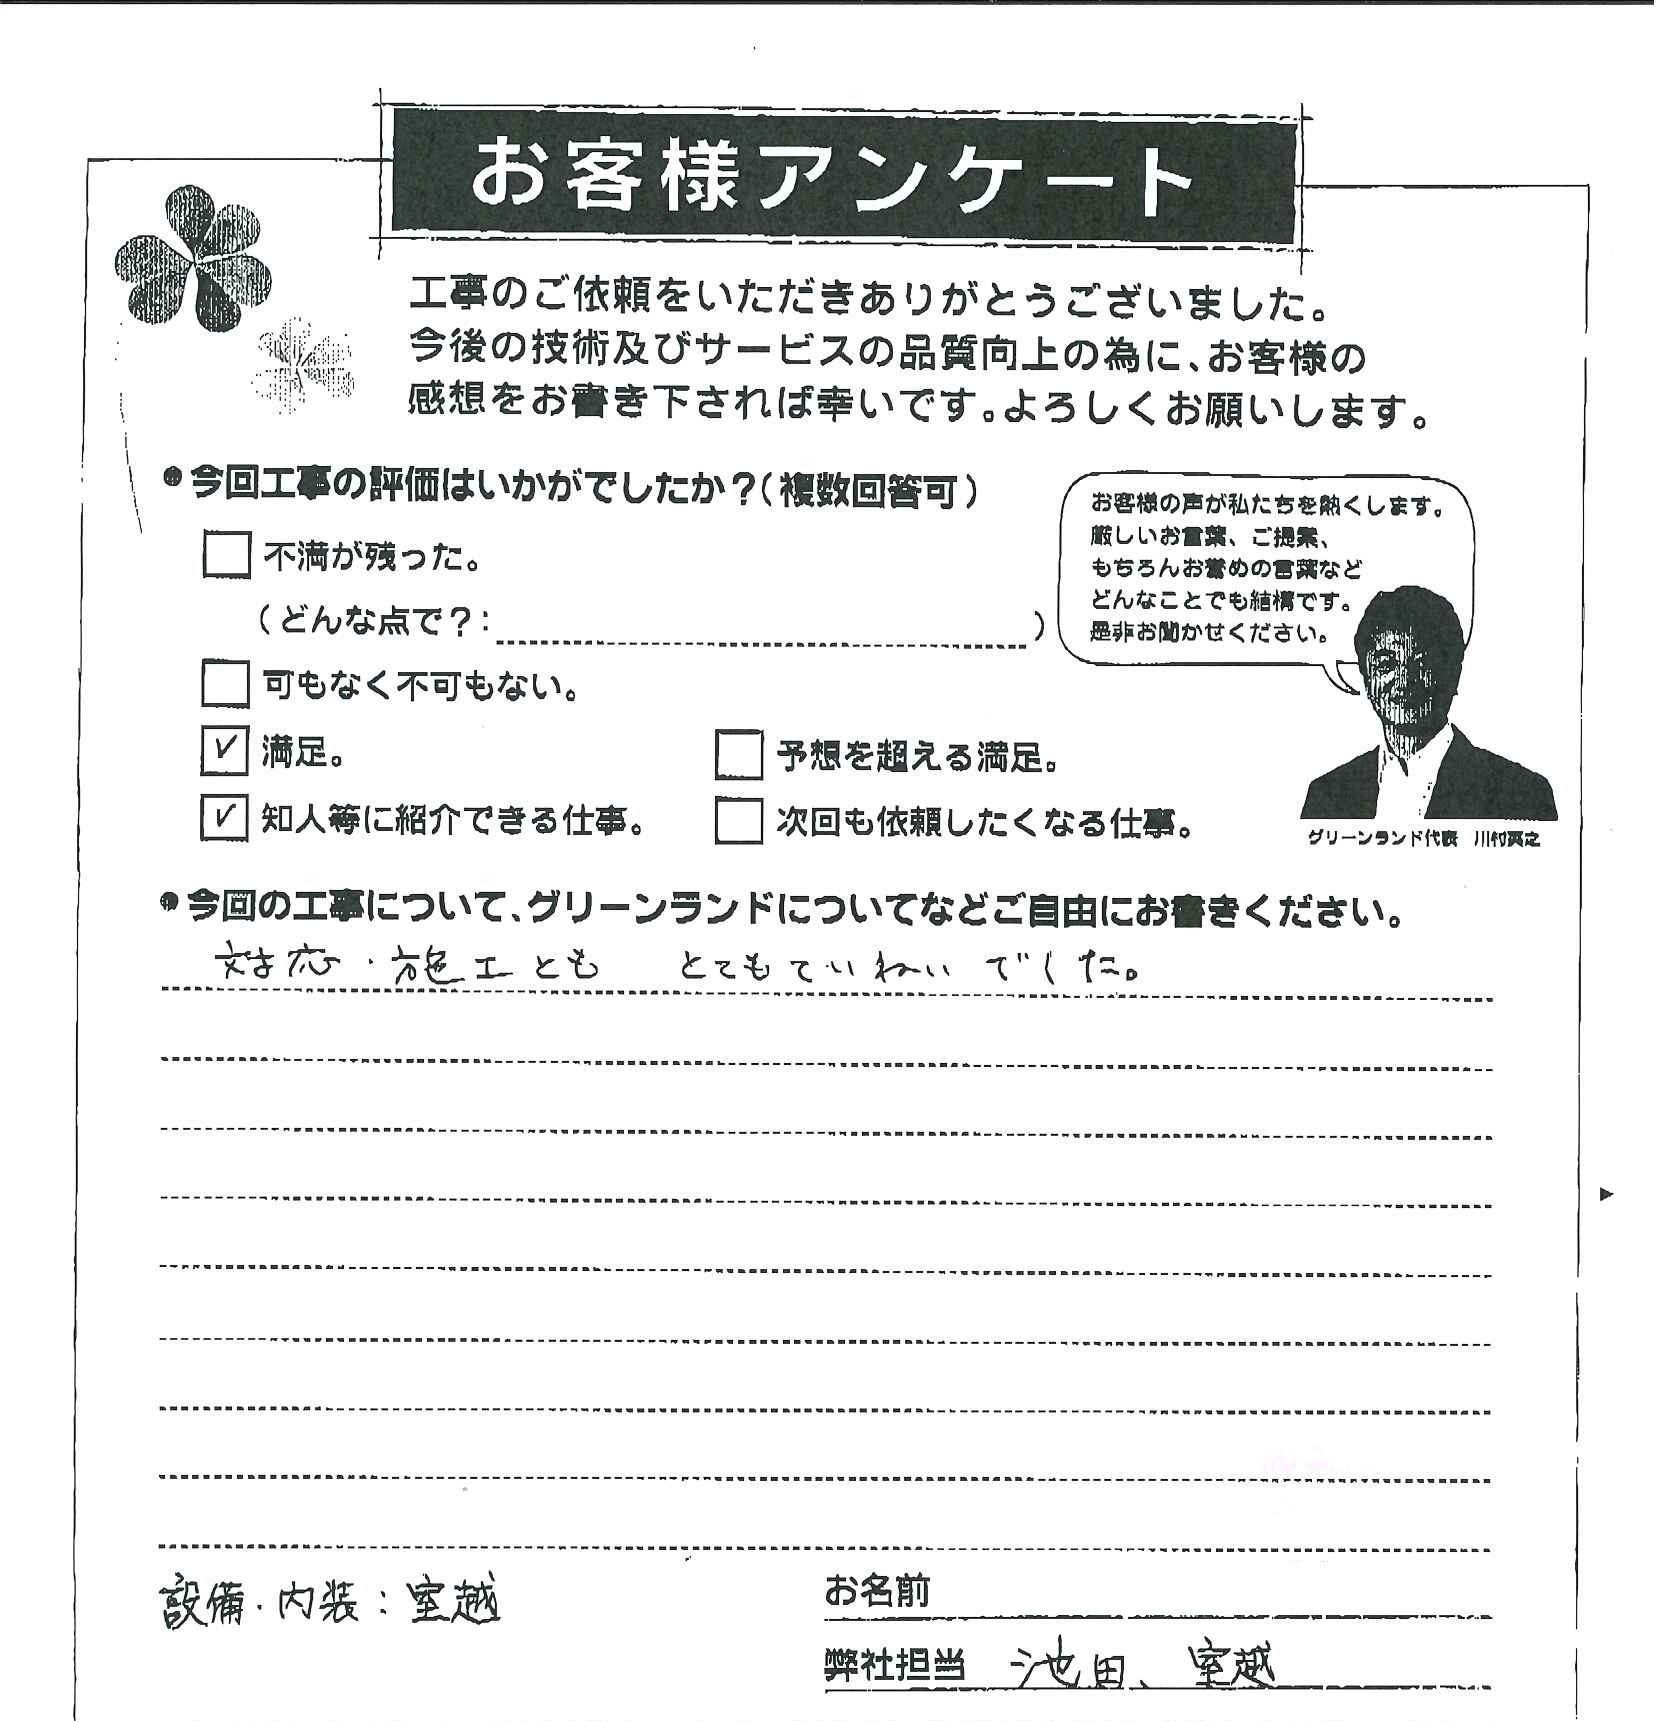 お客様アンケート
工事のご依頼をいただきありがとうございました。
今後の技術及びサービスの品質向上の為に、お客様の
感想をお書き下されば幸いです。よろしくお願いします。
●今回工事の評価はいかがでしたか?(複数回答可)
お客様の声が私たちを熱くします。
厳しいお言葉、ご提案、
もちろんお誉めの言葉など
どんなことでも結構です。
是非お聞かせください。
不満が残った。
(どんな点で?: )
可もなく不可もない。
✓ 満足。 予想を超える満足。
✓ 知人等に紹介できる仕事。 次回も依頼したくなる仕事。
グリーンランド代表 川村英之
●今回の工事について、グリーンランドについてなどご自由にお書きください。
対応・施工とも とてもていねいでした。
設備・内装:室越
お名前
弊社担当 池田、室越